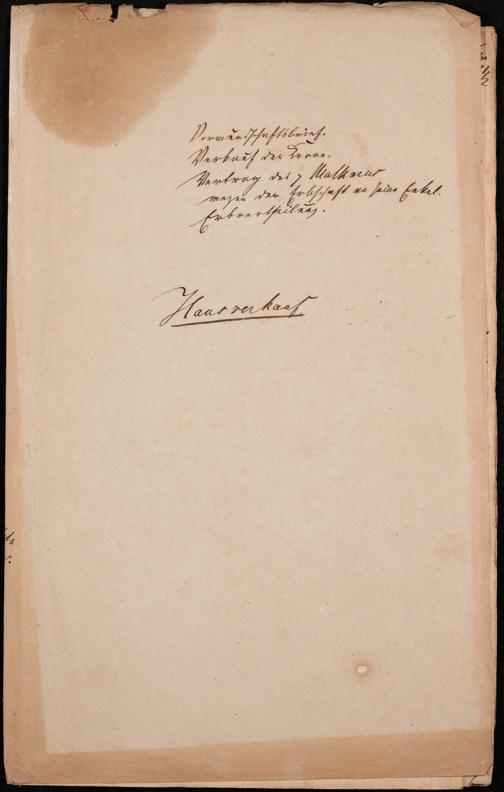 Vormundschaftsbrief.
Verkauf der Krone.
Vertrag des Matheus
wegen der Erbschaft an seine Enkel.
Erbvertheilung.
Hausverkauf